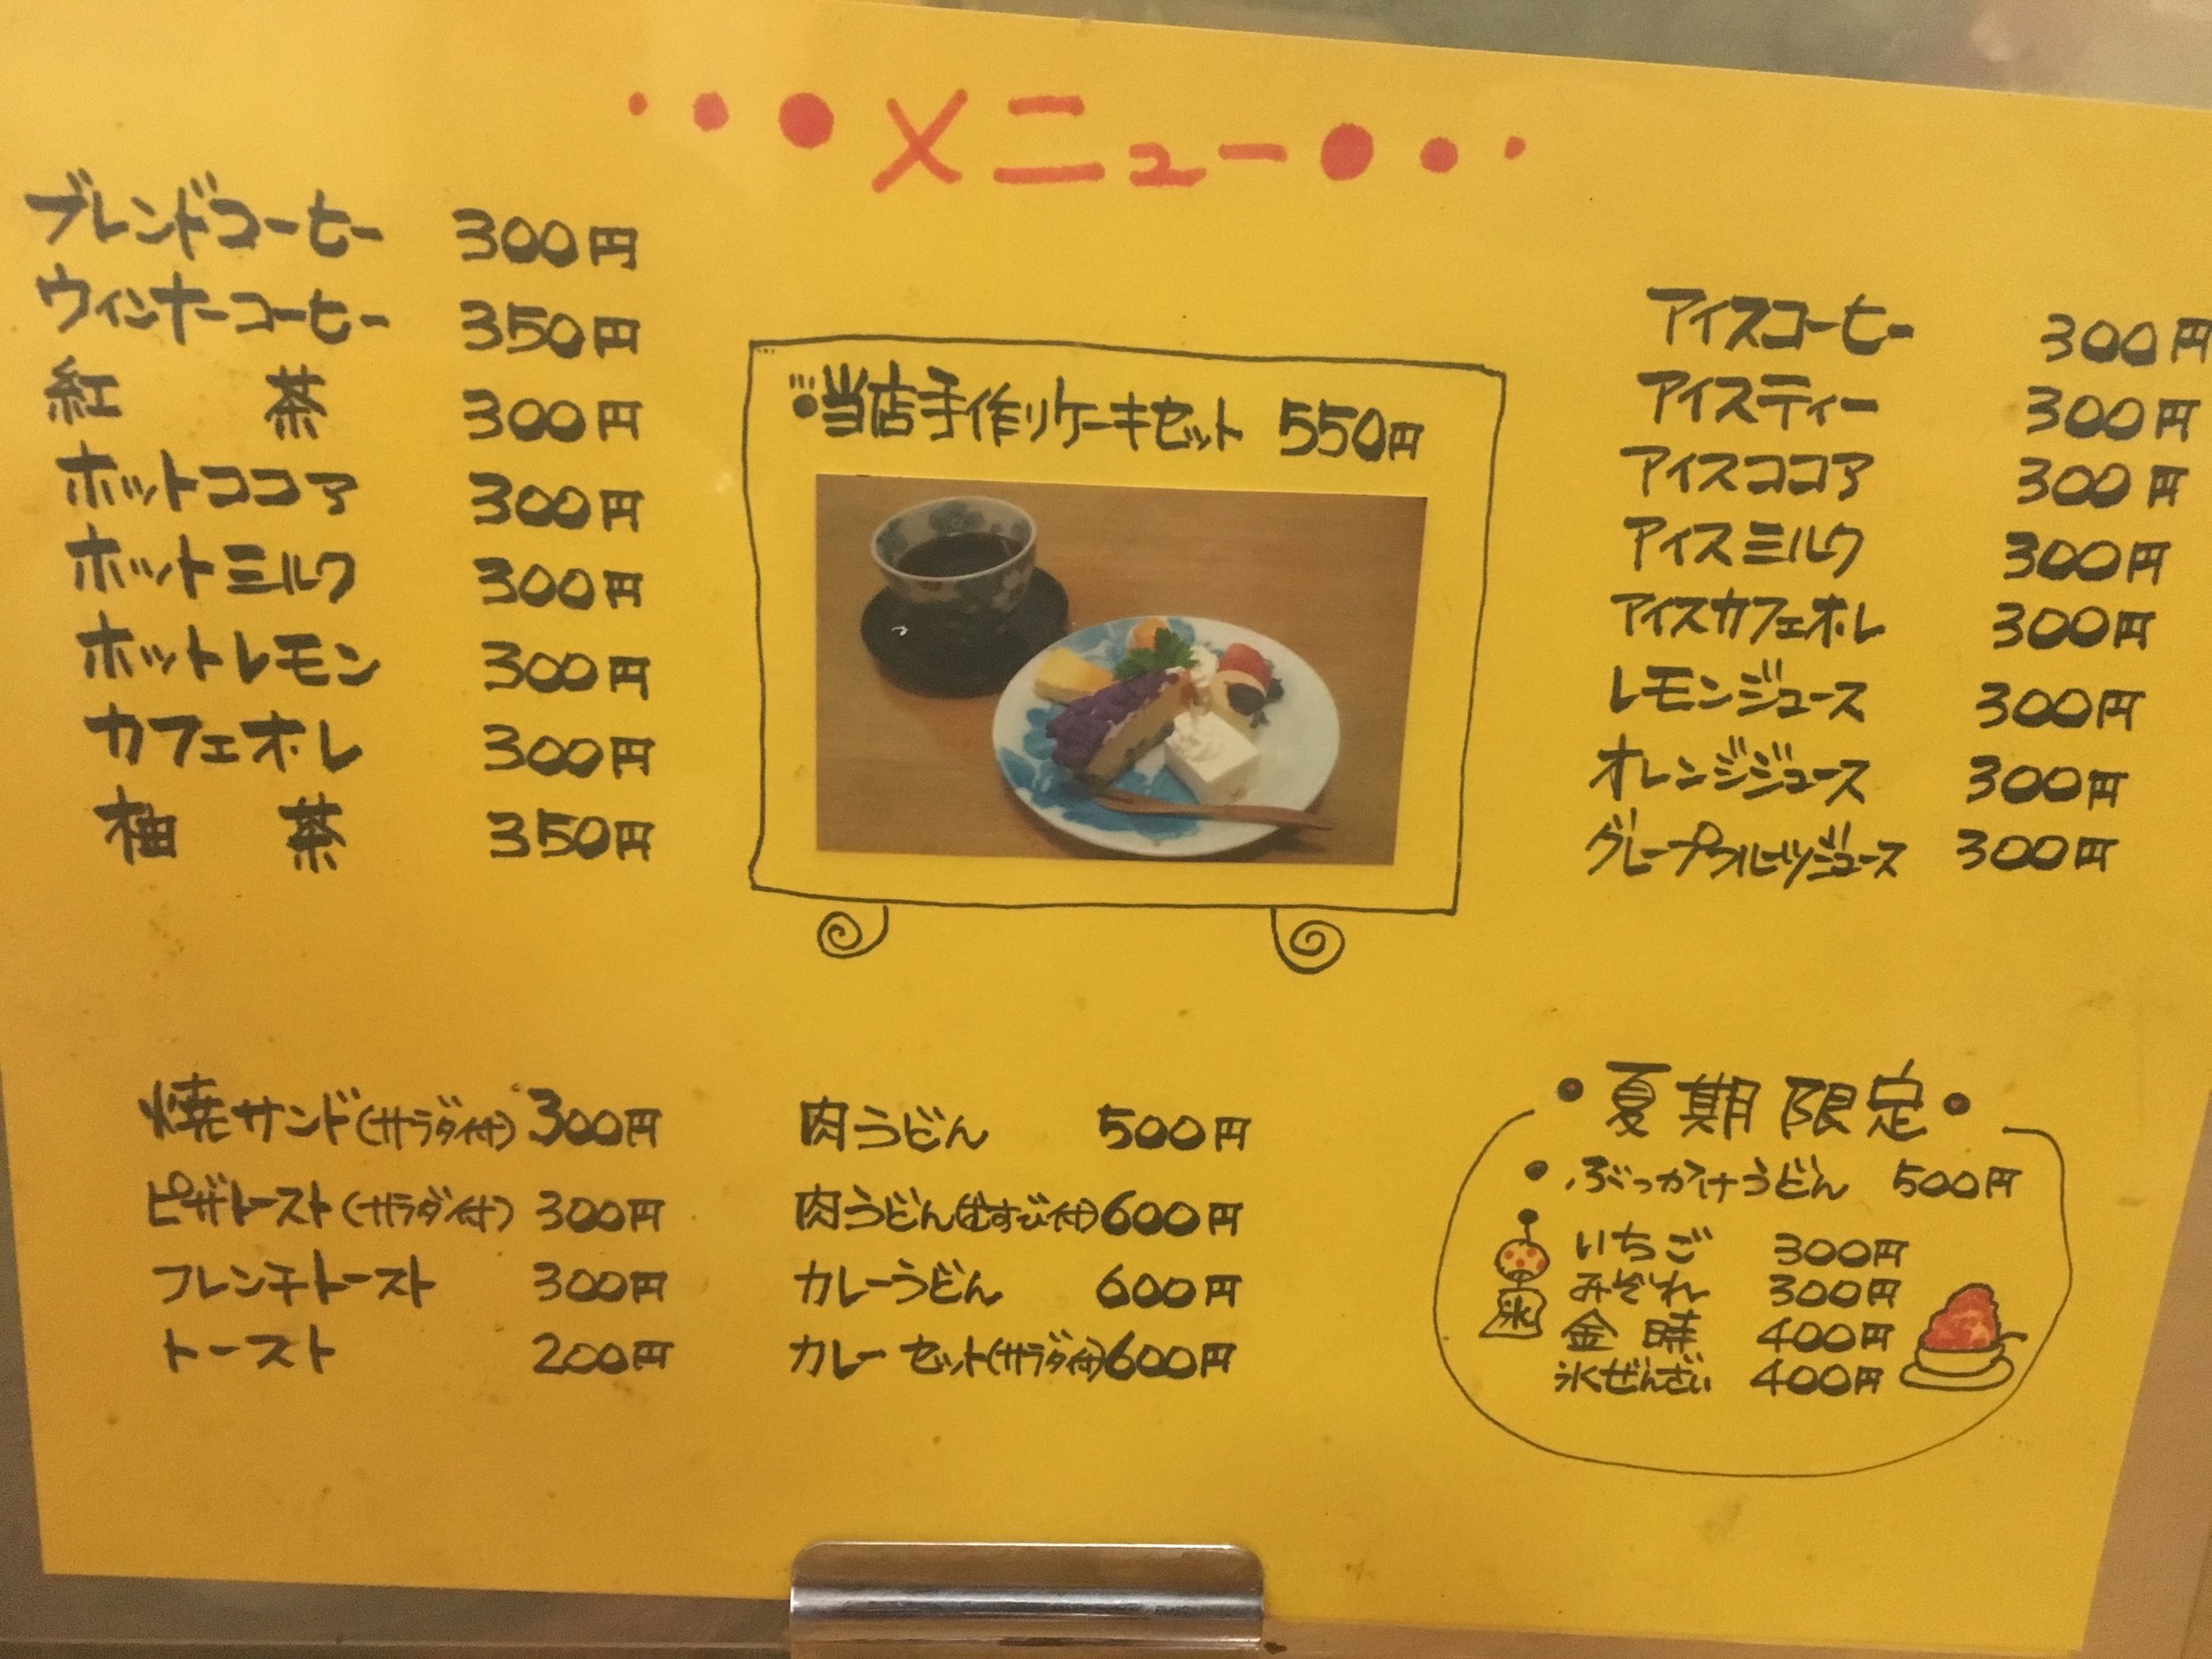 メニュー
ブレンドコーヒー 300円
ウィンナーコーヒー 350円
紅茶 300円
ホットココア 300円
ホットミルク 300円
ホットレモン 300円
カフェオレ 300円
柚茶 350円
当店手作りケーキセット 550円
アイスコーヒー 300円
アイスティー 300円
アイスココア 300円
アイスミルク 300円
アイスカフェオレ 300円
レモンジュース 300円
オレンジジュース 300円
グレープフルーツジュース 300円
焼サンド(サラダ付) 300円
ピザトースト(サラダ付) 300円
フレンチトースト 300円
トースト 200円
肉うどん 500円
肉うどん(むすび付) 600円
カレーうどん 600円
カレーセット(サラダ付) 600円
夏期限定
ぶっかけうどん 500円
氷
いちご 300円
みぞれ 300円
金時 400円
氷ぜんざい 400円